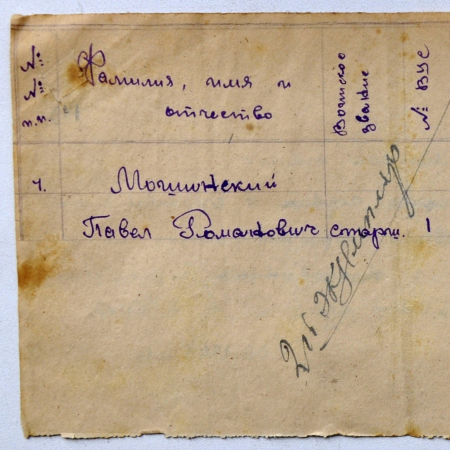 №№ п.п.
Фамилия, имя и
отчество
Воинское
звание
№ ВУС
4.
Мошинский
Павел Романович старш. 1
2й экземпляр